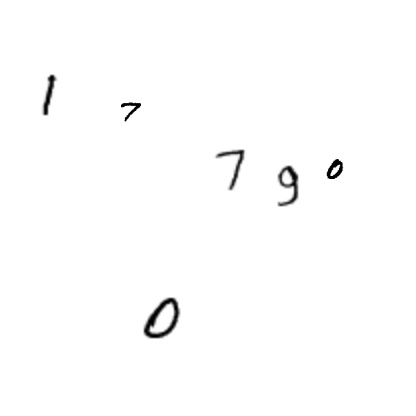 1 7
7 9 0
0